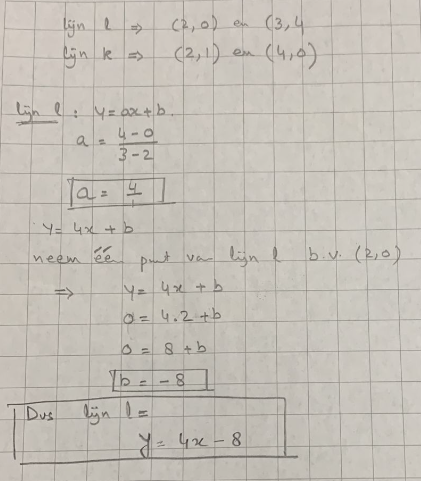 lijn l => (2,0) en (3,4
lijn k => (2,1) en (4,0)
lijn l : y=ax+b.
a = 4-0
3-2
a = 4
1
y= 4x + b
neem één punt van lijn l b.v. (2,0)
=> y= 4x + b
0= 4.2 +b
0 = 8 +b
b = -8
Dus lijn l =
y= 4x - 8